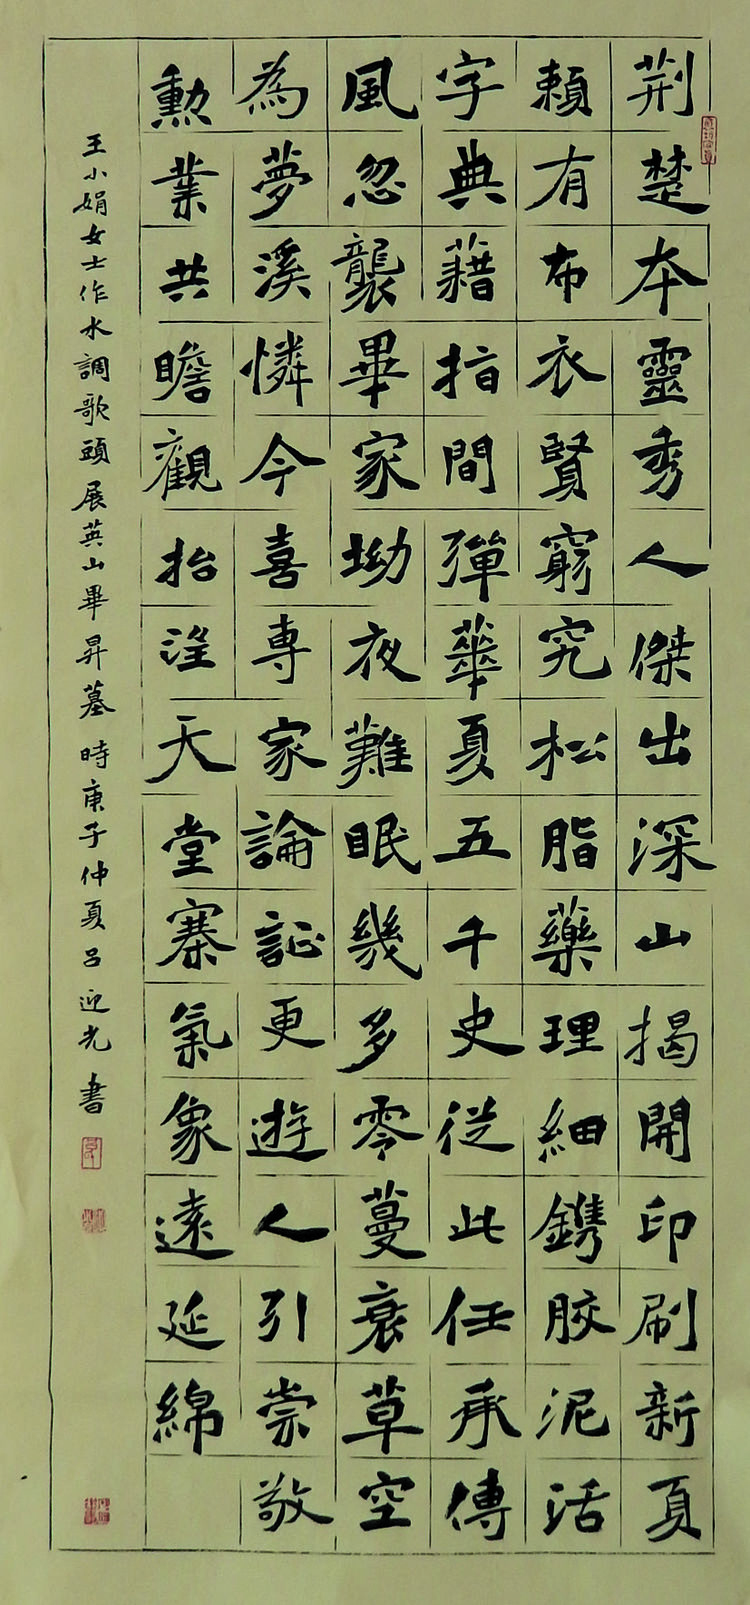 荆楚本靈秀人傑出深山揭開印刷新頁
賴有布衣賢窮究松脂藥理細鐫胶泥活
字典藉指間彈華夏五千史從此任承傳
風忽襲畢家坳夜難眠幾多零蔓衰草空
為夢溪憐今喜專家論証更遊人引崇敬
勳業共瞻觀抬望天堂寨氣象遠延綿
王小娟女士作水調歌頭展英山畢昇墓時庚子仲夏呂迎光書